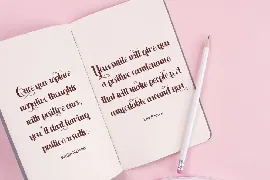 Once you replace
negative thoughts
with positive ones,
you'll start having
positive results.
Your smile will give you
a positive countenance
that will make people feel
comfortable around you.